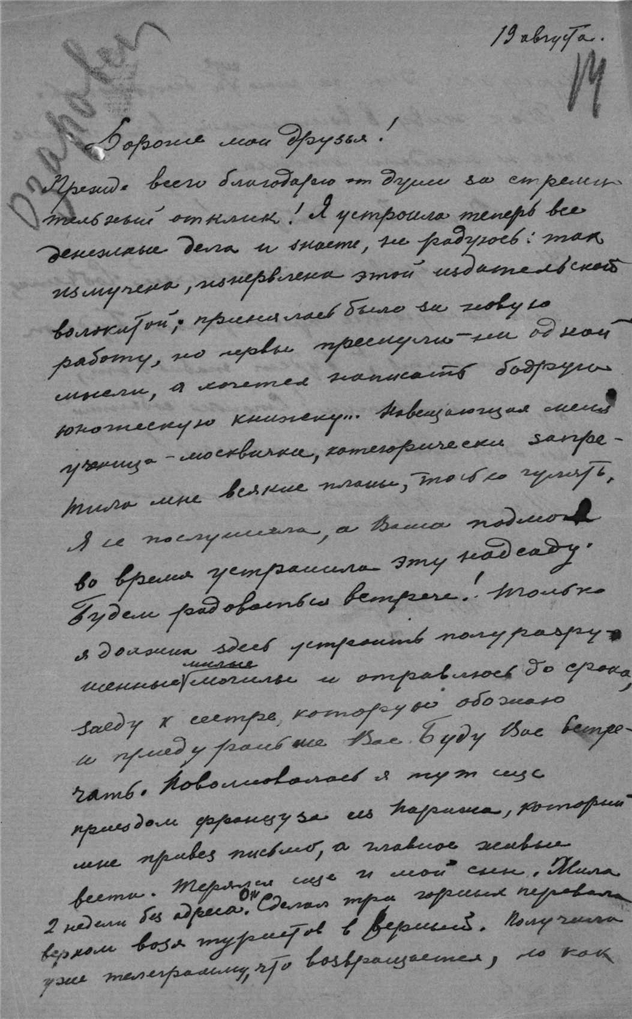 19 августа.
14
Озаровск
Дороже мои друзья!
Прежде всего благодарю от души за стреми
тельный отклик! Я устроила теперь все
денежные дела и знаете, не радуюсь: так
измучена, изнервлена этой издательской
волокитой; принялась было за новую
работу, но нервы треснули – ни одной
мысли, а хочется написать бодрую
юношескую книжку... Навещающая меня
ученица – москвичка, категорически запре-
тила мне всякие планы, только гулять.
Я не послушала, а Ваша подмога
во время устранила эту надсаду.
Будем радоваться встрече! Только
я должна здесь устроить полуразру-
шенные милые могилы и отправлюсь до срока,
заеду к сестре, которую обожаю
и приеду раньше Вас. Буду Вас встре-
чать. Поволновалась я тут еще
приездом француза из Парижа, который
мне привез письмо, а главное живые
вести. Терялся еще и мой сын. Жила
2 недели без адреса. Он сделал три горных перевала
верхом возя туристов в Верный. Получила
уже телеграмму, что возвращается, но как